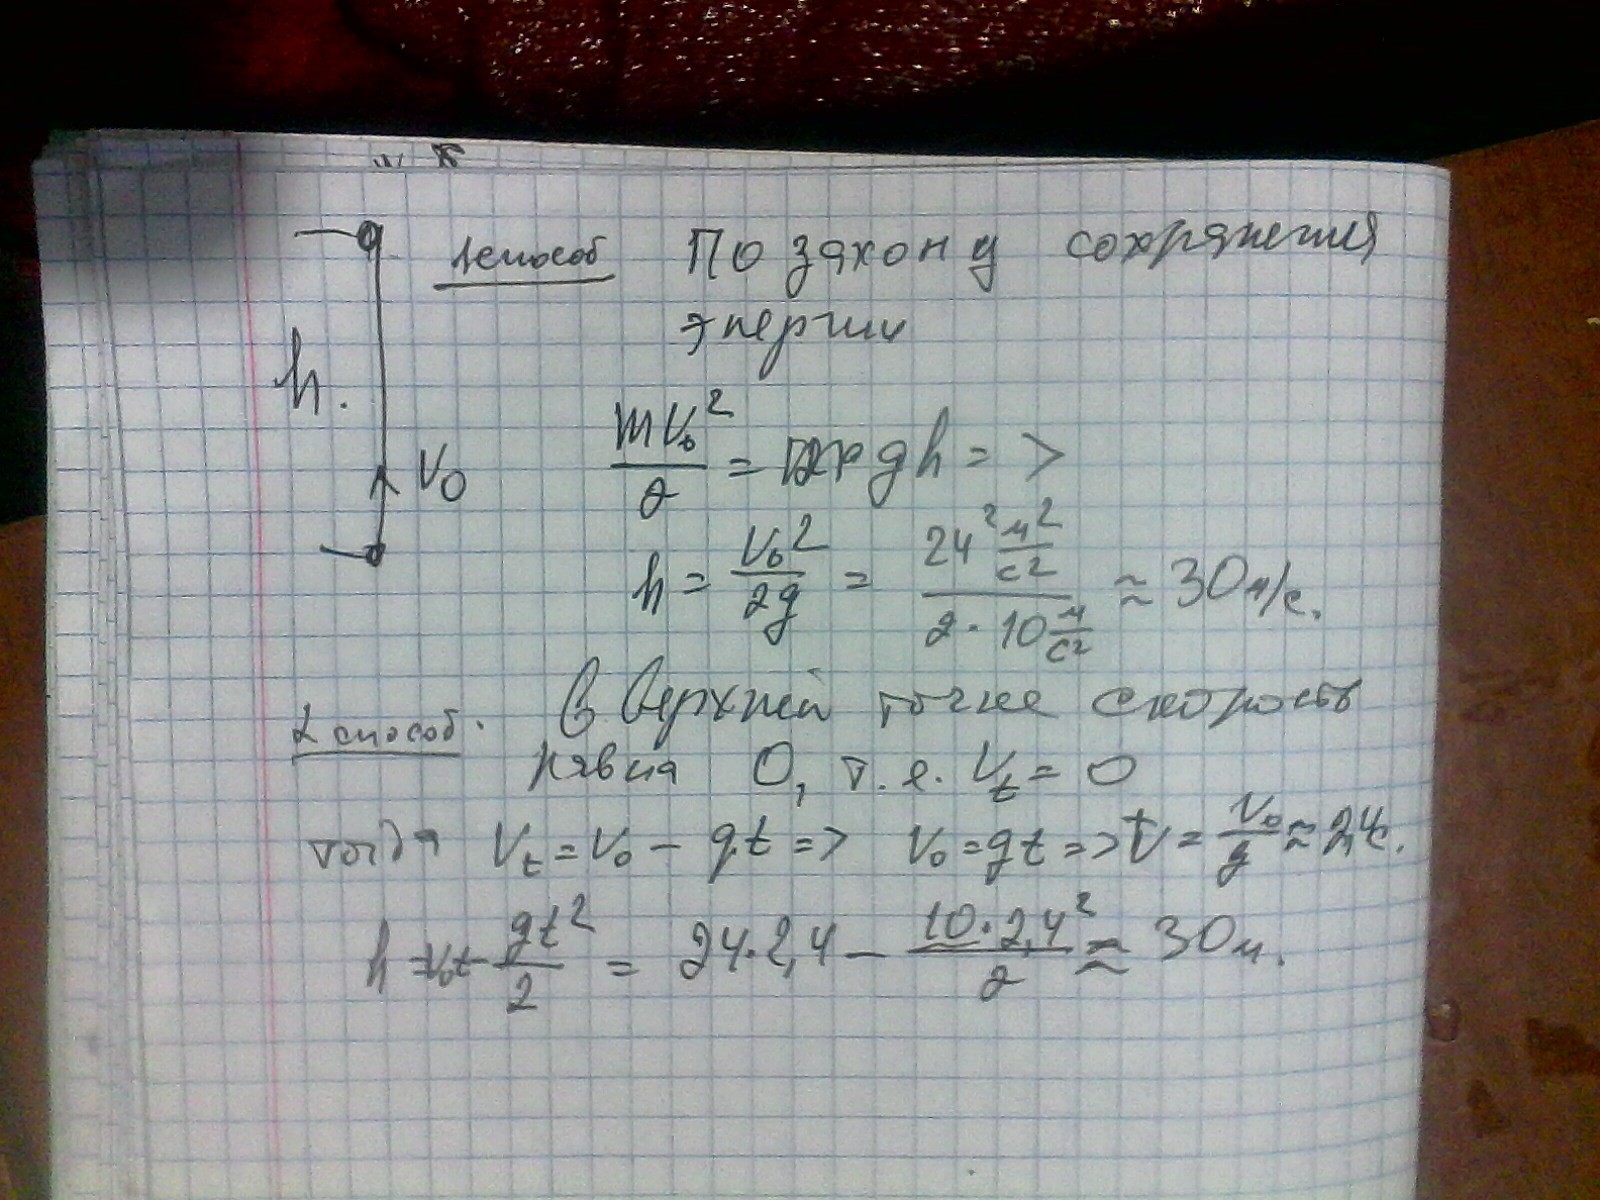 1 способ По закону сохранения
энергии
h.
V₀
mV₀²/2 = mgh =>
h = V₀²/2g = 24² м²/с² / 2·10 м/с² ≈ 30 м/с.
2 способ. В верхней точке скорость
равна 0, т.е. V_t = 0
тогда V_t = V₀ - gt => V₀ = gt => t = V₀/g ≈ 2,4с.
h = V₀t - gt²/2 = 24·2,4 - 10·2,4²/2 ≈ 30м.